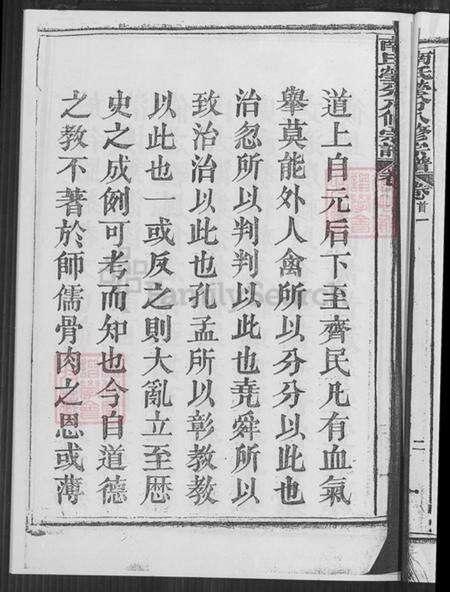 南氏蓥分八修宗譜 卷首 一
二
道上自元后下至齊民凡有血氣
舉莫能外人禽所以分分以此也
治忽所以判判以此也堯舜所以
致治治以此也孔孟所以彰教教
以此也一或反之則大亂立至歷
史之成例可考而知也今自道德
之教不著於師儒骨肉之恩或薄
FamilySearch